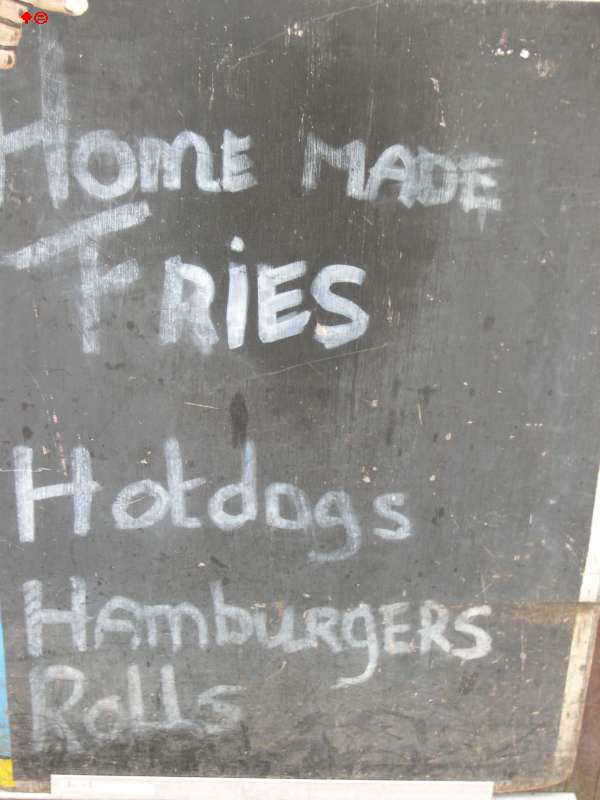 HOmE MADE
FRiES
Hotdogs
HAmbuRgERS
Rolls